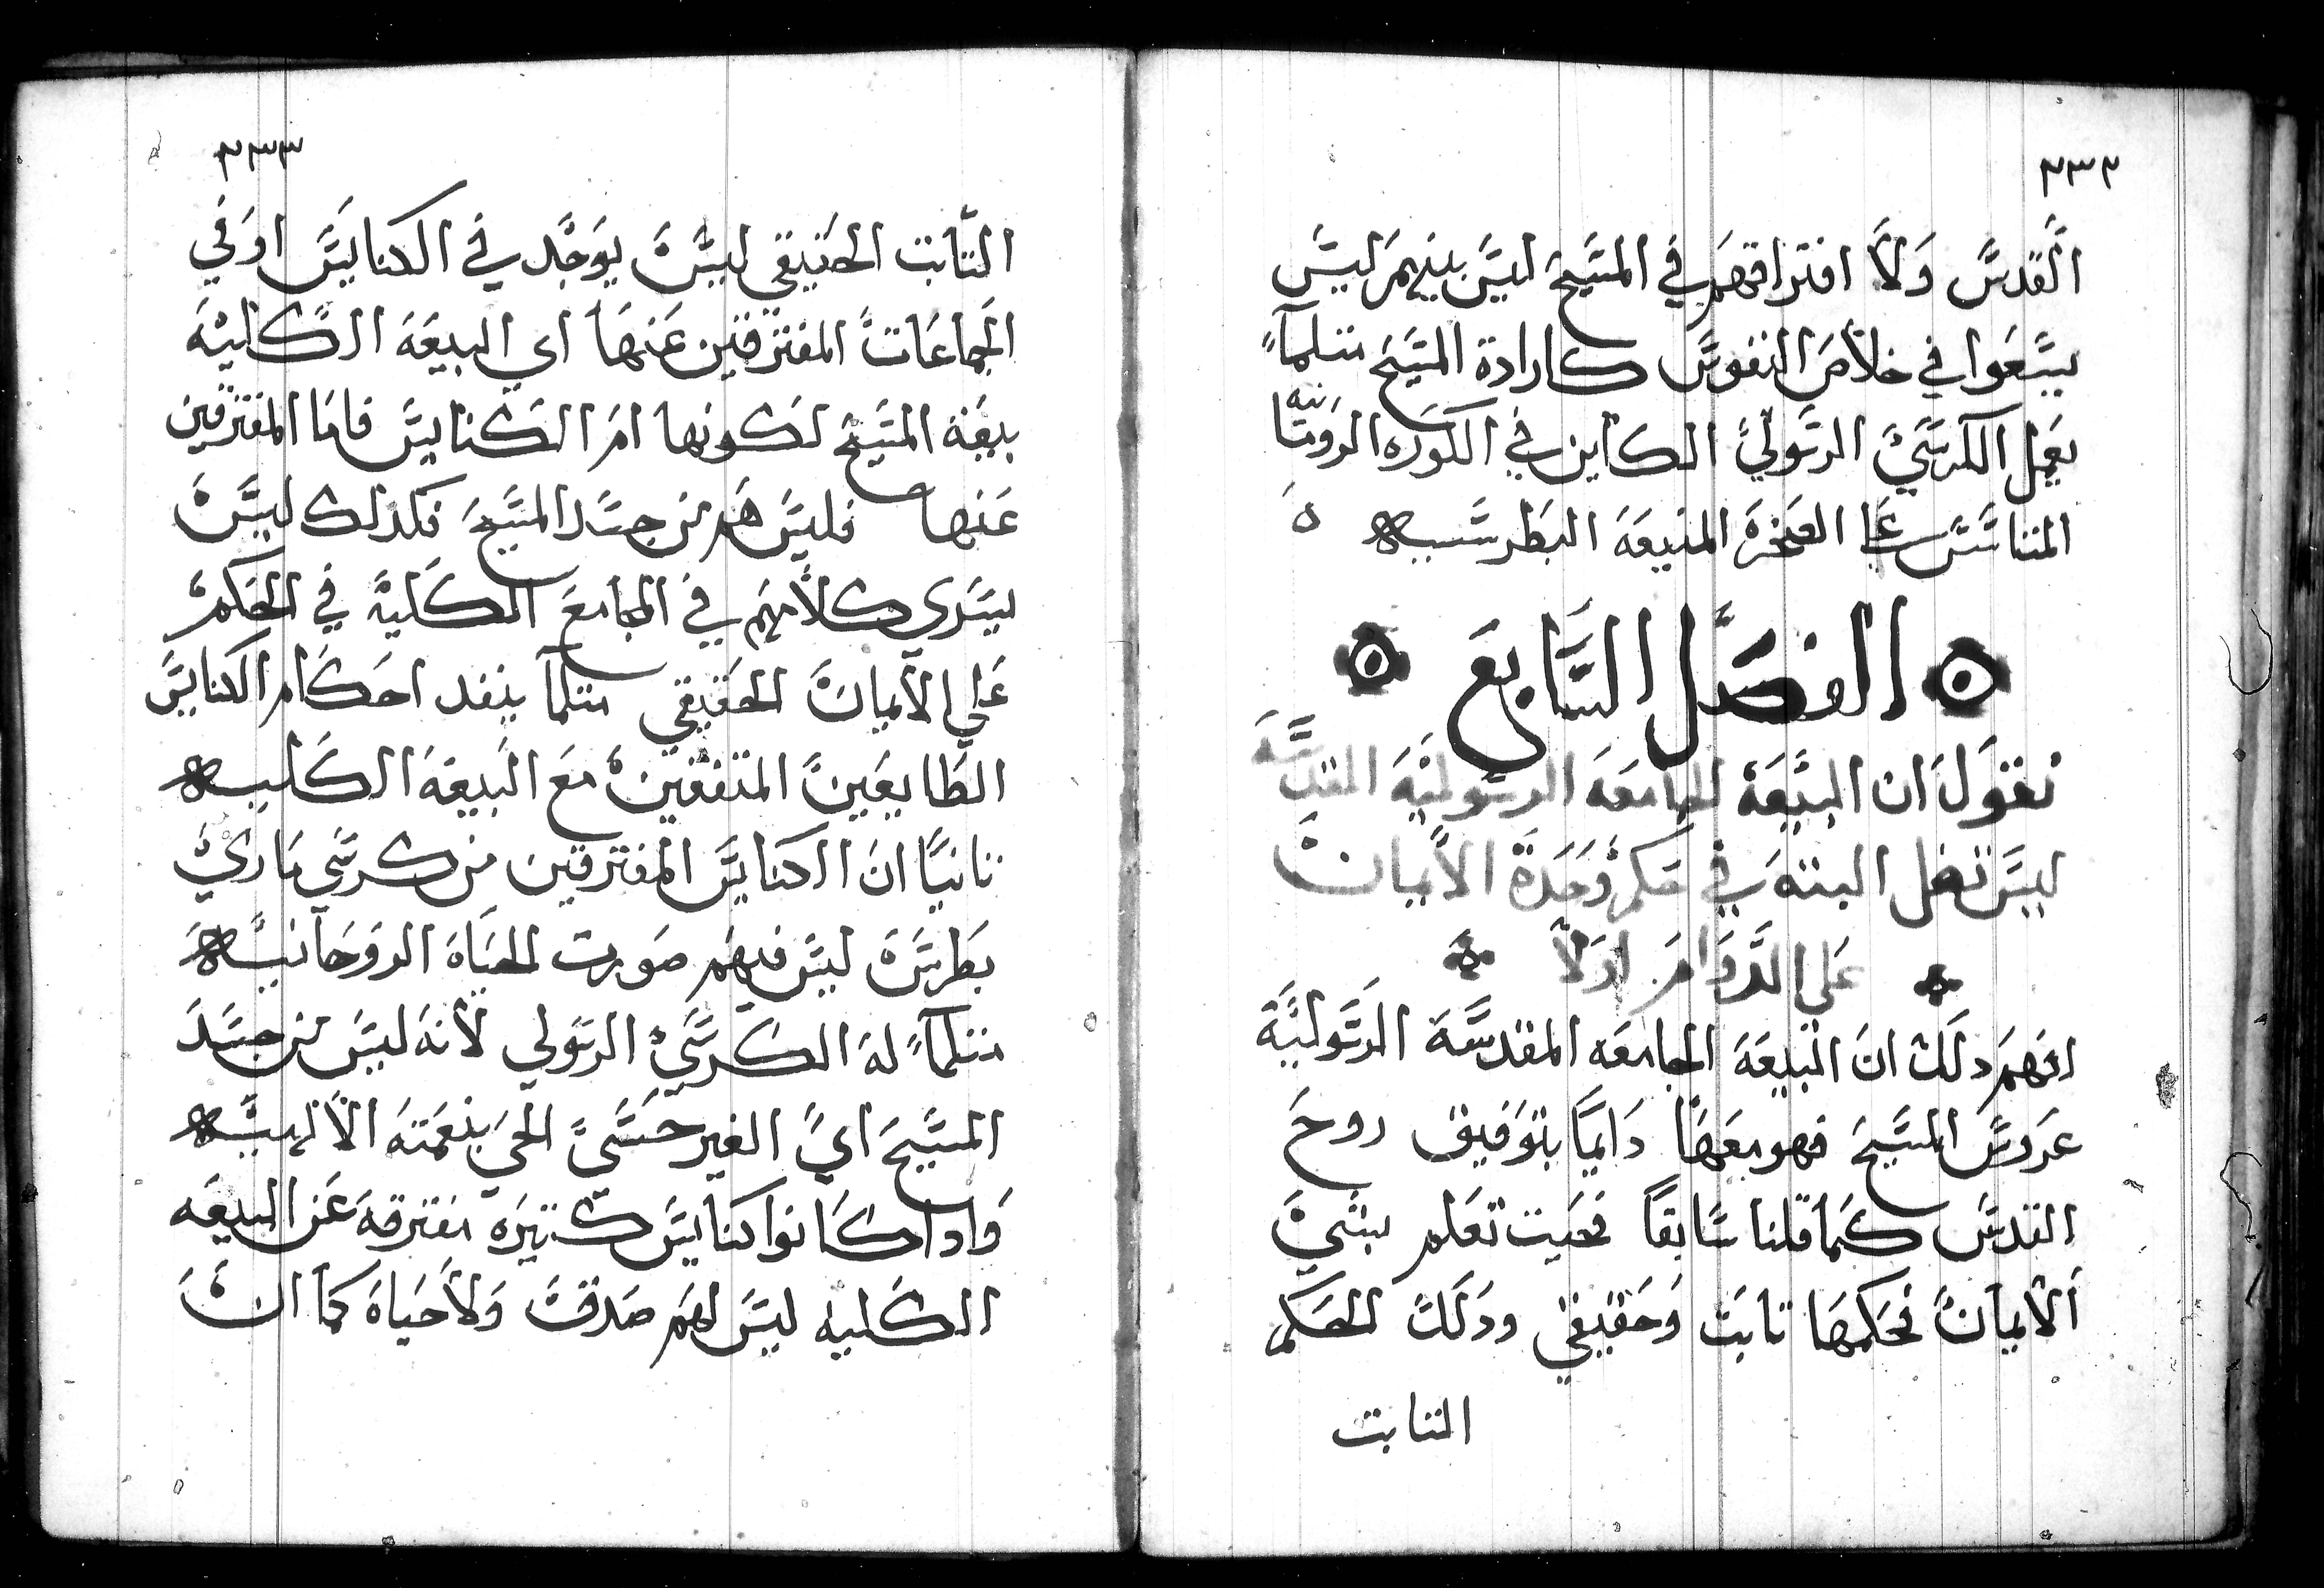 ٣٣٢
القدس ولا افتراقهم في المسيح ليس بينهم ليس
يسعوا في خلاص النفوس كارادة المسيح متلما
يعمل الكرسي الرسولي الكاين في الكوره الرومانيه
المتاسس علي الصخرة المنيعة البطرسيه
الفصل السابع
نقول ان البيعة الجامعة الرسولية المقدسة
ليس تضل البتة في حكم وحدة الايمان
على الدوام اولا
افهم دلك ان البيعة الجامعه المقدسة الرسولية
عروس المسيح فهو معها دايما بتوفيق روح
القدس كما قلنا سابقا فحيت تعلم بشي
الايمان فحكمها تابت وحقيقي ودلك الحكم
التابت
٣٣٣
التابت الحقيقي ليس يوجد في الكنايس او في
الجماعات المفترقين عنها اي البيعة الكلية
بيعة المسيح لكونها ام الكنايس فاما المفترقين
عنها فليس هم من جسد المسيح فكدلك ليس
يسري كلامهم في المجامع الكلية في الحكم
علي الايمان الحقيقي متلما ينفد احكام الكنايس
الطايعين المتفقين مع البيعة الكليه
تانيا ان الكنايس المفترقين من كرسي ماري
بطرس ليس فيهم صورت الحياة الروحانيه
متلما له الكرسي الرسولي لانه ليس من جسد
المسيح اي الغير حسي الحي بنعمته الالهيه
وادا كانوا كنايس كتيره مفترقة عن البيعه
الكليه ليس لهم صدقت ولا حياة كما ان